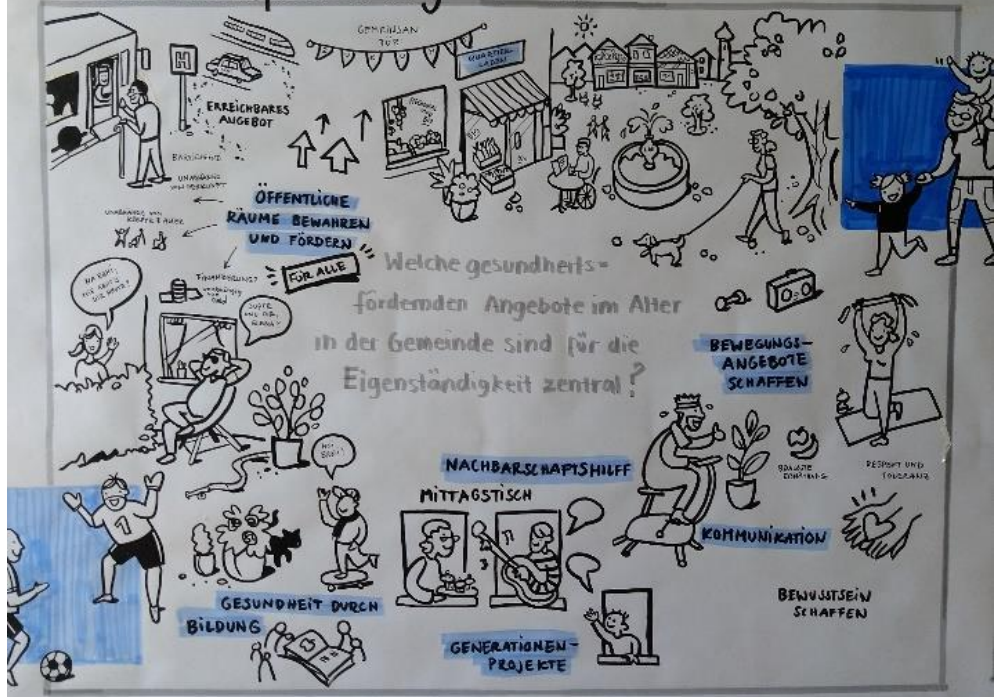 GEMEINSAM
FÜR
QUARTIER-
LADEN
H
ERREICHBARES
ANGEBOT
ÖFFENTLICHE
RÄUME BEWAHREN
UND FÖRDERN
FINANZIERUNG?
FÜR ALLE
Welche gesundheits-
fördernden Angebote im Alter
in der Gemeinde sind für die
Eigenständigkeit zentral?
BEWEGUNGS-
ANGEBOTE
SCHAFFEN
NACHBARSCHAFTSHILFE
MITTAGSTISCH
RESPEKT UND
TOLERANZ
KOMMUNIKATION
BEWUSSTSEIN
SCHAFFEN
GESUNDHEIT DURCH
BILDUNG
1
GENERATIONEN-
PROJEKTE